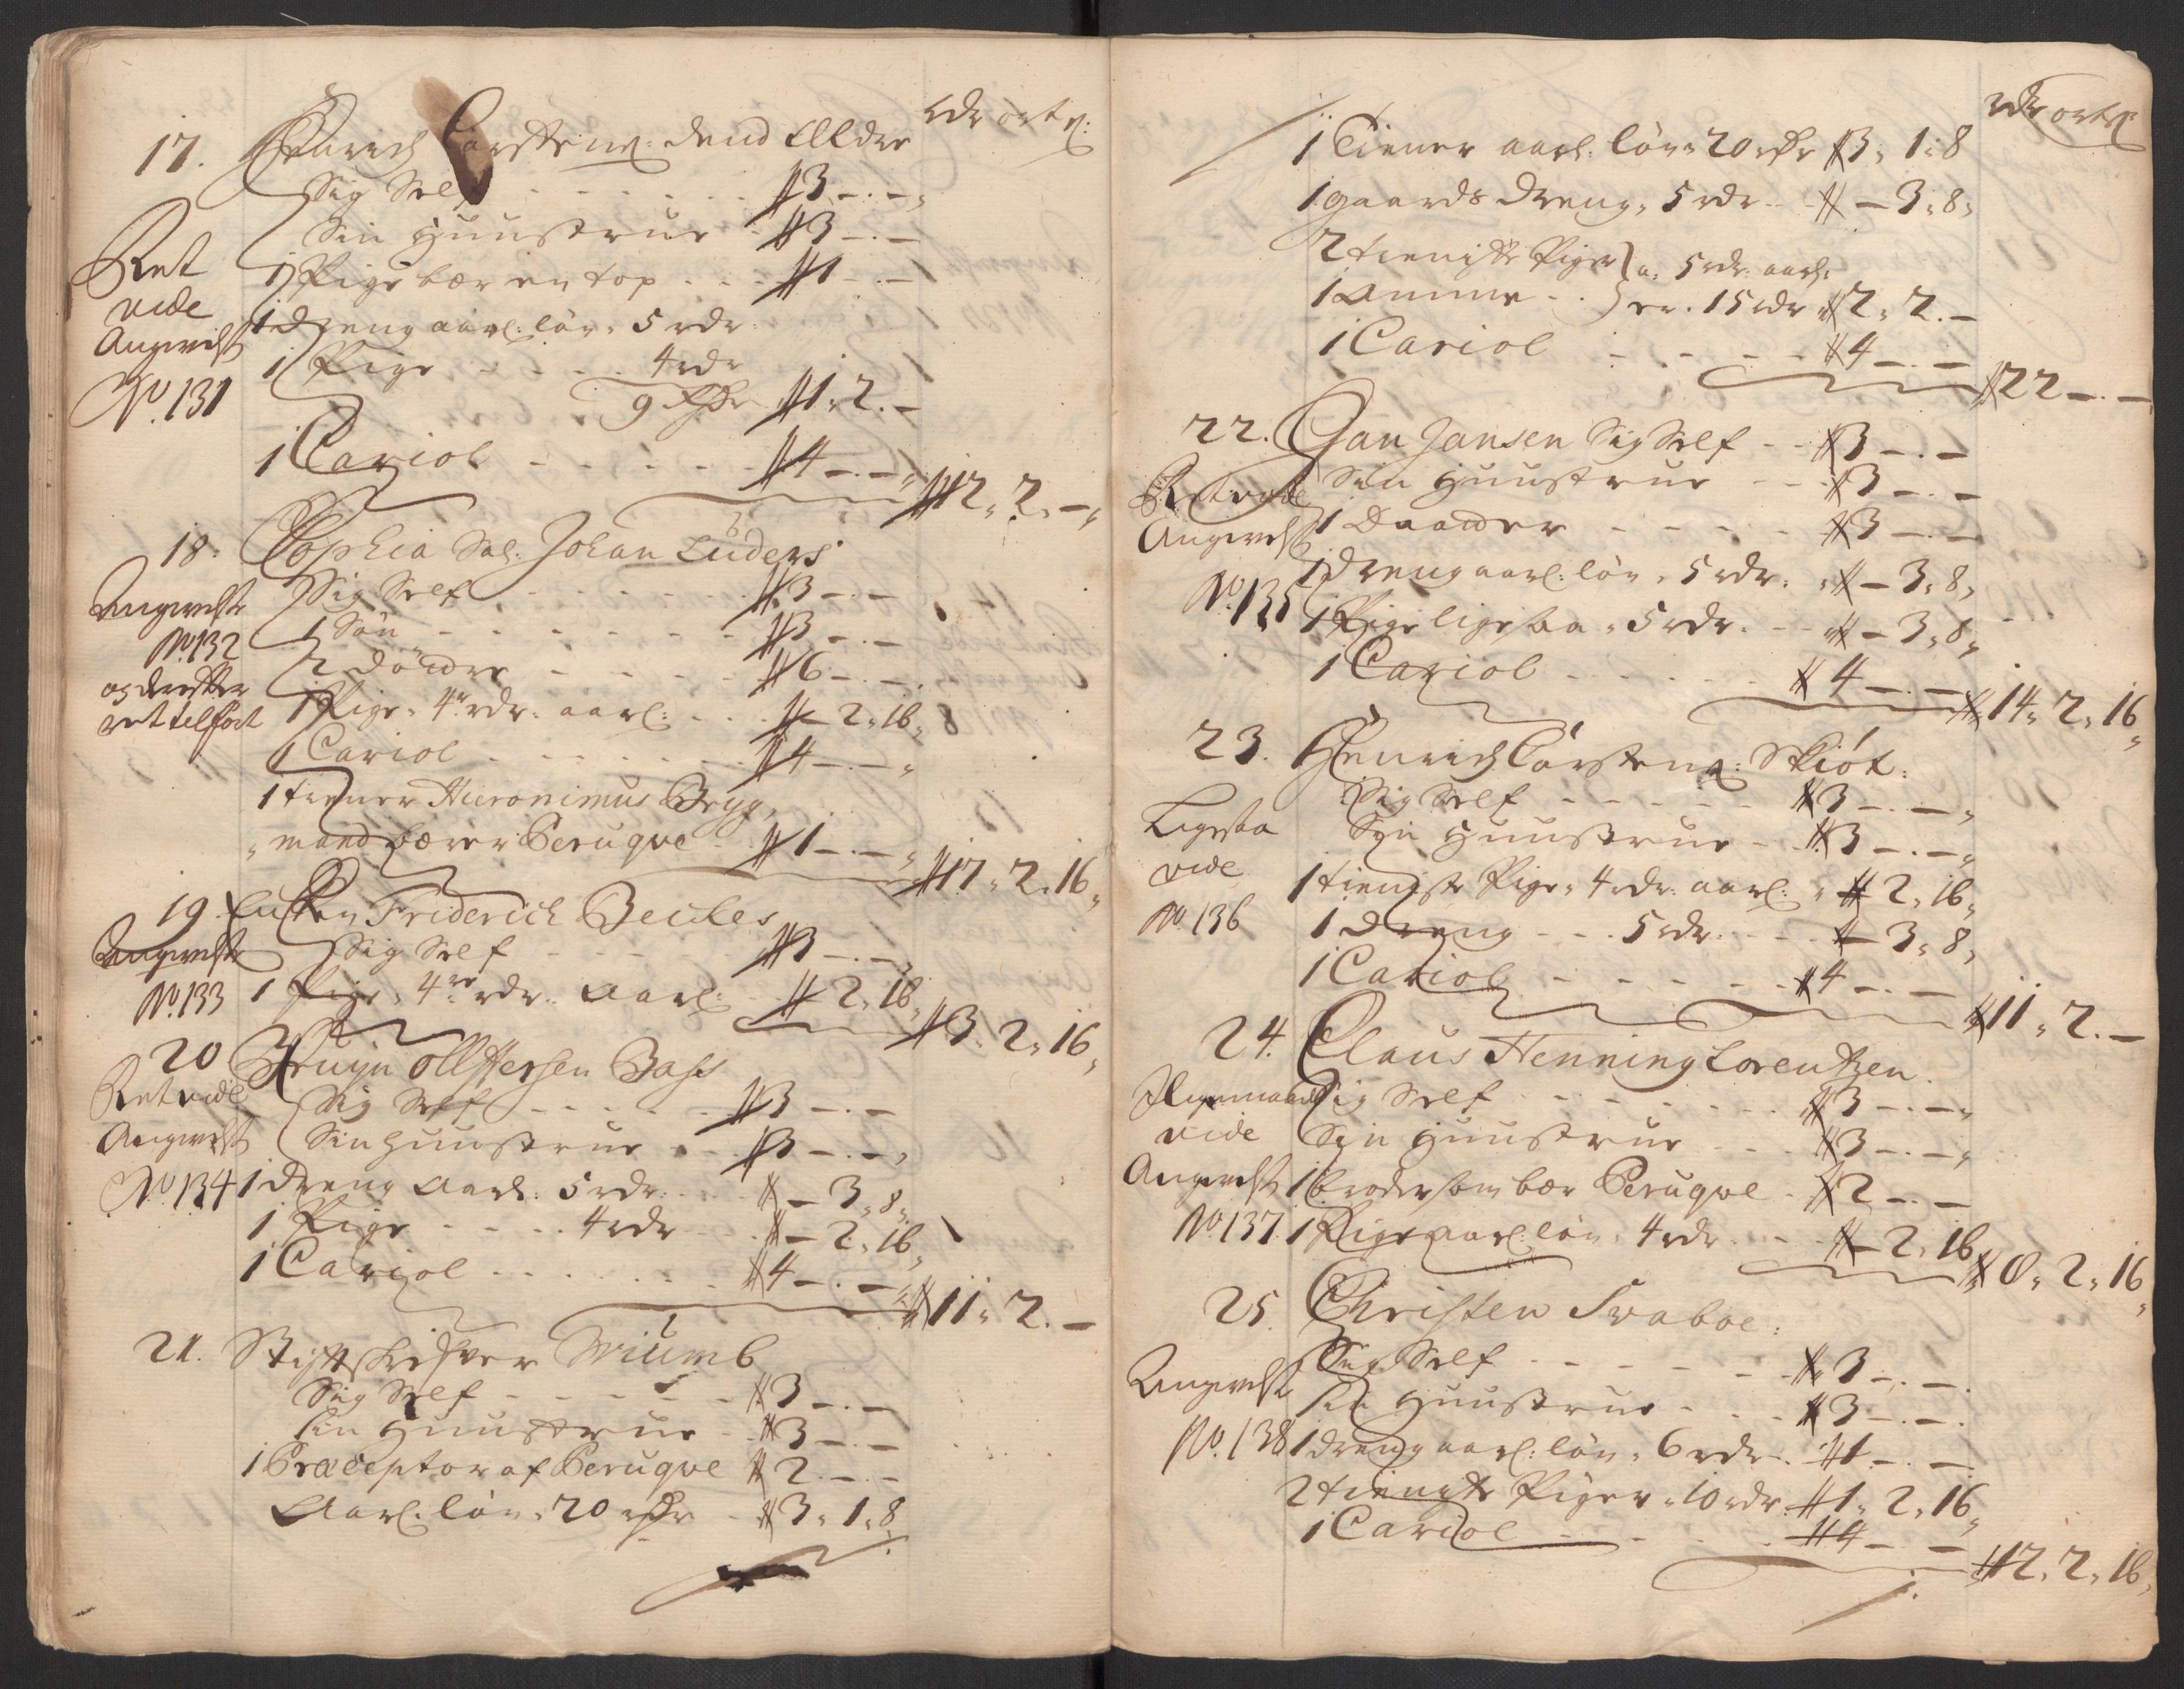 rdr ort ß:
17. Henrich Carstens: dend Eldre
Sig Self - - - - - - # 3 -.-
Sin Huustrue - # 3 -.-
Ret 1 Pige bær en top . . . # 1 -.-
vide 1 dreng aarl: løn 5 rdr:
Angivelse 1 Pige - - - - 4 rdr
No. 131 9 Rdr # 1. 2. -
1 Cariol - - - - - - # 4 -.-
# 12. 2. -
18. Sophia Sal: Johan Lüders
Angivelse Sig Self - - - - - # 3 -.-
No 132 1 Søn - - - - - - # 3 -.-
2 døttre - - - - - # 6 -.-
og derefter 1 Pige 4 rdr: aarl: . . . # - 2. 16
rettelført
1 Cariol - - - - - - # 4 -.-
1 tiener Hieronimus Bryg,
mand bærer Peruqve - # 1 -.-
# 17. 2. 16
19. Friderich Beckes
Angivelse Sig Self - - - - # 3 -.-
No. 133 1 Pige, 4re rdr: Aarl: # 2. 16
# 3. 2. 16
20 Bass
Ret vide Sig Self - - - - - # 3 -.-
Angivelse Sin Huustrue - - # 3 -.-
No 134 1 dreng Aarl: 5 rdr: . . # - 3. 8.
1 Pige - - - - 4 rdr - # - 2. 16
1 Cariol - - - - - - # 4 -.-
# 11. 2. -
21. Stiftskriver Wiumb
Sig Self - - - - - - # 3 -.-
sin Huustrue - # 3 -.-
1 Præceptor af Peruqve # 2 -.-
Aarl: løn 20 rdr - # 3. 1. 8
rdr ort ß
1 Tiener aarl: løn 20 rdr # 3. 1. 8
1 gaards dreng, 5 rdr - - # - 3. 8.
2 tieniste Piger } a. 5 rdr: aarl:
1 Amme - . } er. 15 rdr # 2. 2. -
1 Cariol - - - - - # 4 -.-
# 22 -.-
22. Jan Jansen Sig Self - - # 3 -.-
Ret vide Sin Huustrue - - # 3 -.-
Angivelse 1 Daatter - - - - - # 3 -.-
1 dreng aarl: løn, 5 rdr: # - 3. 8.
No. 135 1 Pige lige saa, 5 rdr. - - # - 3. 8.
1 Cariol - - - - - # 4 -.-
# 14. 2. 16
23. Henrich Carstens: Skiøt:
Sig Self - - - - - # 3 -.-
Ligesaa Syn Huustrue - # 3 -.-
vide 1 tieniste Pige, 4 rdr: aarl: # 2. 16
No 136 1 dreng - - . 5 rdr. - - # - 3. 8.
1 Cariol - - - - - - # 4 -.-
# 11. 2. -
24. Claus Henning Lorentzen.
Sig Self - - - - - # 3 -.-
vide Syn Huustrue - - - # 3 -.-
Angivelse 1 broder som bær Peruqve - # 2 -.-
No 137. 1 Pige aarl: løn, 4 rdr. - - # - 2. 16
# 8. 2. 16
25. Christen Svaboe:
Sig Self - - - - - - # 3 -.-
Angivelse sin Huustrue - - - # 3 -.-
No. 138 1 dreng aarl: løn, 6 rdr. # 1 -.-
2 tieniste Piger, 10 rdr. # 1. 2. 16
1 Cariol - - - - - # 4 -.-
# 12. 2. 16